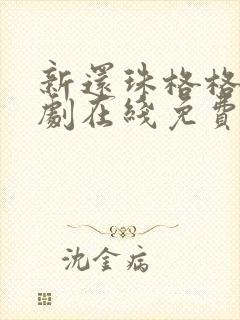 新還珠格格
劇在綫免費
沈金病